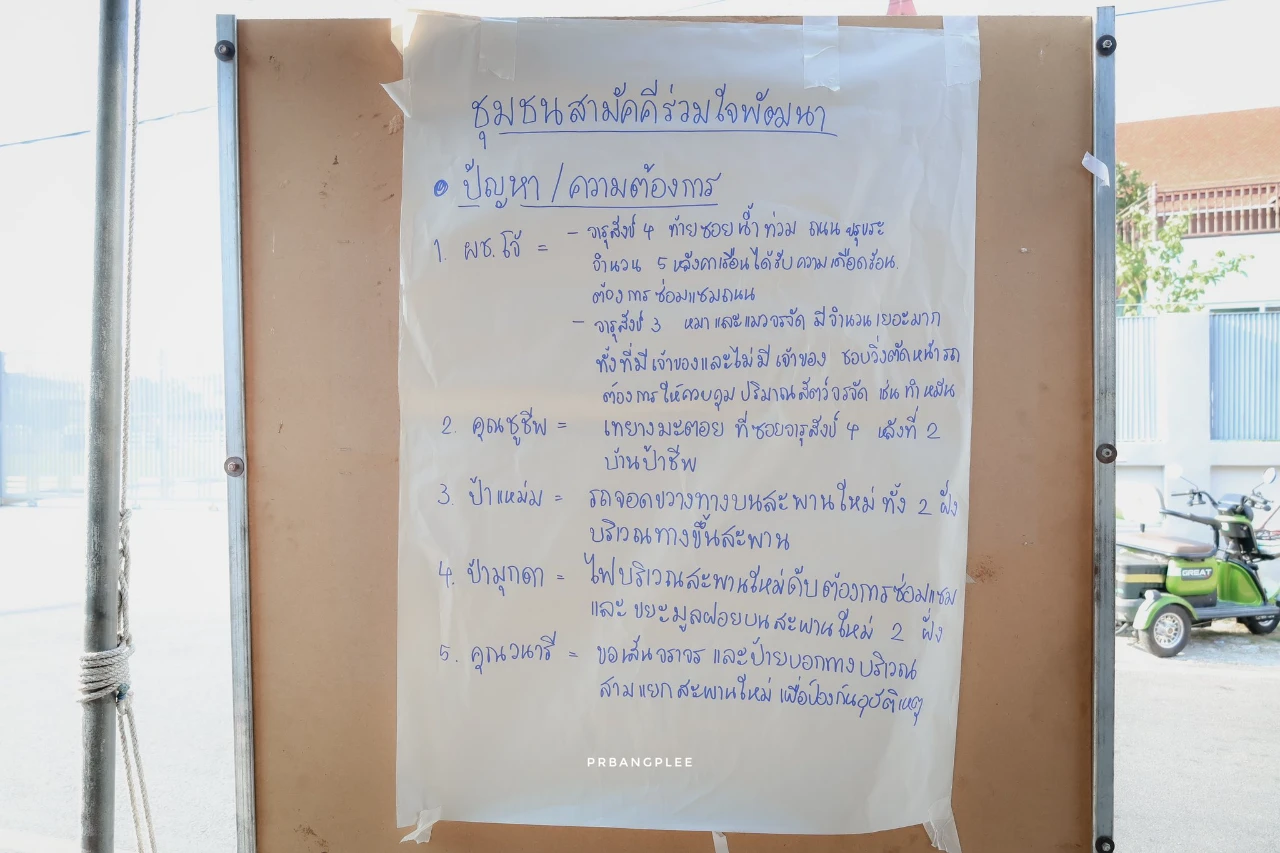 ชุมชนสามัคคีร่วมใจพัฒนา
• ปัญหา / ความต้องการ
1. ผช.โจ้ = - จารุสังข์ 4 ท้ายซอยน้ำท่วม ถนนขรุขระ
จำนวน 5 หลังคาเรือนได้รับความเดือดร้อน.
ต้องการซ่อมแซมถนน
- จารุสังข์ 3 หมาและแมวจรจัด มีจำนวนเยอะมาก
ทั้งที่มีเจ้าของและไม่มีเจ้าของ ชอบวิ่งตัดหน้ารถ
ต้องการให้ควบคุมปริมาณสัตว์จรจัด เช่น ทำหมัน
2. คุณชูชีพ = เทยางมะตอย ที่ซอยจารุสังข์ 4 หลังที่ 2
บ้านป้าชีพ
3. ป้าแหม่ม = รถจอดขวางทางบนสะพานใหม่ ทั้ง 2 ฝั่ง
บริเวณทางขึ้นสะพาน
4. ป้ามุกดา = ไฟบริเวณสะพานใหม่ดับต้องการซ่อมแซม
และ ขยะมูลฝอยบนสะพานใหม่ 2 ฝั่ง
5. คุณวนารี = ขอเส้นจราจร และป้ายบอกทางบริเวณ
สามแยกสะพานใหม่ เพื่อป้องกันอุบัติเหตุ
PRBANGPLEE
GREAT